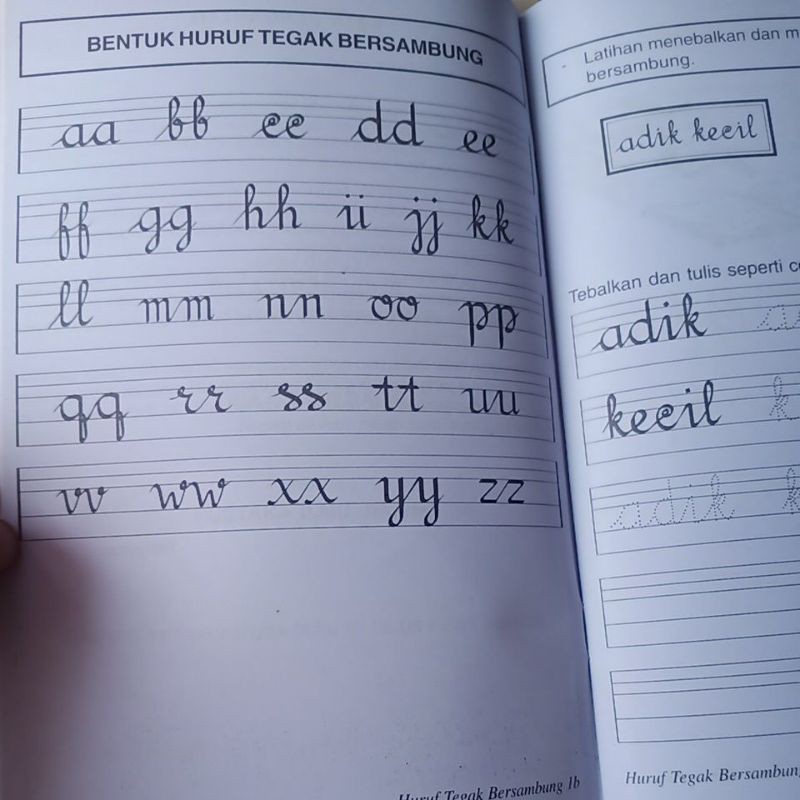 BENTUK HURUF TEGAK BERSAMBUNG
aa bb ee dd ee
ff gg hh ii jj kk
ll mm nn oo pp
qq rr ss tt uu
vv ww xx yy zz
Huruf Tegak Bersambung 1b
Latihan menebalkan dan
bersambung.
adik kecil
Tebalkan dan tulis seperti
adik
kecil
adik
Huruf Tegak Bersambung